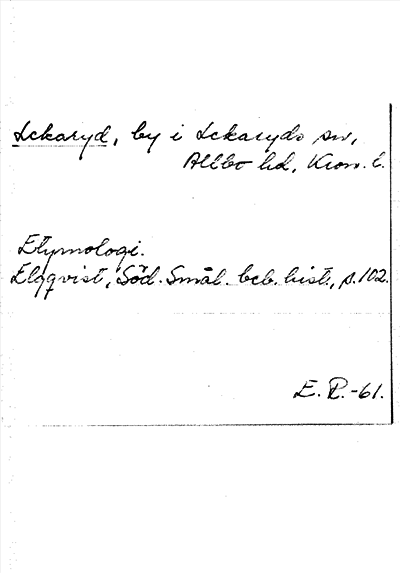 Lekaryd, by i Lekaryds sn,
Allbo hd, Kron. l.
Etymologi.
Elgqvist, Söd. Smål. beb. hist., s. 102.
E. P. -61.